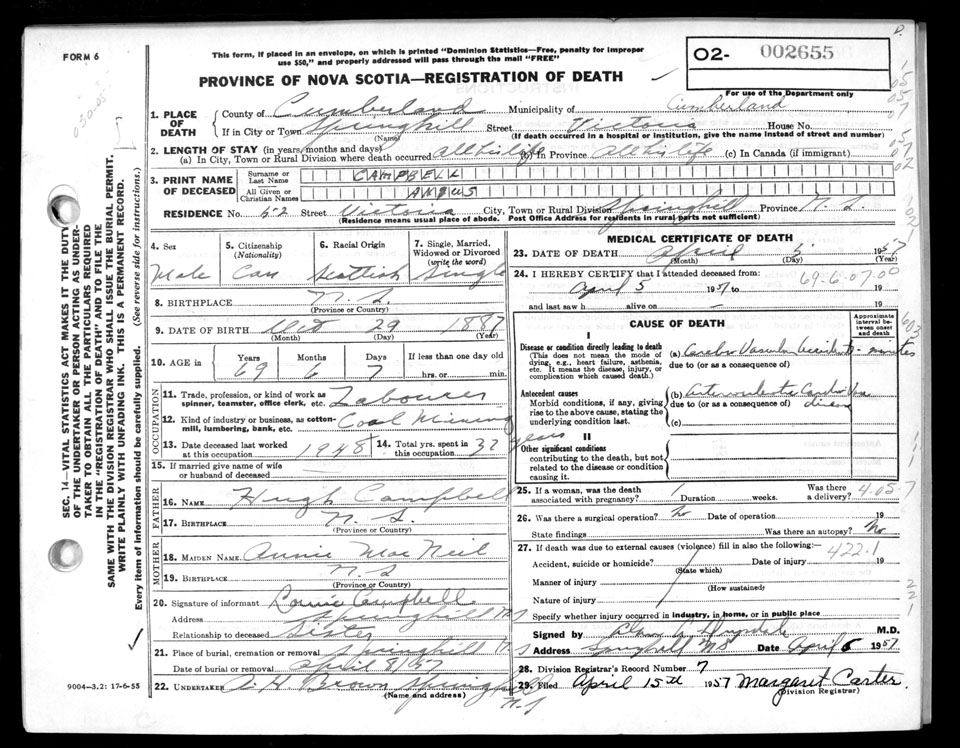 FORM 6
This form, if placed in an envelope, on which is printed "Dominion Statistics—Free, penalty for improper
use $50," and properly addressed will pass through the mail "FREE"
PROVINCE OF NOVA SCOTIA—REGISTRATION OF DEATH
02- 002655
For use of the Department only
1. PLACE OF DEATH
County of Cumberland Municipality of Cumberland
If in City or Town Springhill Street Victoria House No.
(Name) (If death occurred in a hospital or institution, give the name instead of street and number)
2. LENGTH OF STAY (in years, months and days)
(a) In City, Town or Rural Division where death occurred all his life (b) In Province All his life (c) In Canada (if immigrant)
3. PRINT NAME OF DECEASED
Surname or Last Name CAMPBELL
All Given or Christian Names ANGUS
RESIDENCE No. 52 Street Victoria City, Town or Rural Division Springhill Province N. S.
(Residence means usual place of abode. Post Office Address for residents in rural parts not sufficient)
4. Sex Male
5. Citizenship (Nationality) Can
6. Racial Origin Scottish
7. Single, Married, Widowed or Divorced (write the word) Single
8. BIRTHPLACE N. S.
(Province or Country)
9. DATE OF BIRTH Oct 29 1887
(Month) (Day) (Year)
10. AGE in Years 69 Months 6 Days 7 If less than one day old
hrs. or min.
OCCUPATION
11. Trade, profession, or kind of work as spinner, teamster, office clerk, etc. Labourer
12. Kind of industry or business, as cotton-mill, lumbering, bank, etc. Coal Mining
13. Date deceased last worked at this occupation 1948
14. Total yrs. spent in this occupation 32 years
15. If married give name of wife or husband of deceased
FATHER
16. NAME Hugh Campbell
17. BIRTHPLACE N. S.
(Province or Country)
MOTHER
18. MAIDEN NAME Annie MacNeil
19. BIRTHPLACE N. S
(Province or Country)
20. Signature of informant Campbell
Address Springhill N S
Relationship to deceased Sister
21. Place of burial, cremation or removal Springhill N S
Date of burial or removal April 8/57
22. UNDERTAKER A H Brown Springhill N.S
(Name and address)
MEDICAL CERTIFICATE OF DEATH
23. DATE OF DEATH April 1957
(Month) (Day) (Year)
24. I HEREBY CERTIFY that I attended deceased from:
April 5 1957 to 19
69-6-07.00
and last saw h alive on 19
CAUSE OF DEATH
Approximate interval between onset and death
I
Disease or condition directly leading to death
(This does not mean the mode of dying, e.g., heart failure, asthenia, etc. It means the disease, injury, or complication which caused death.)
(a) Cerebro Vascular Accident minutes
due to (or as a consequence of)
Antecedent causes
Morbid conditions, if any, giving rise to the above cause, stating the underlying condition last.
(b)
due to (or as a consequence of) disease
(c)
II
Other significant conditions
contributing to the death, but not related to the disease or condition causing it.
25. If a woman, was the death associated with pregnancy? Duration weeks. Was there a delivery?
4-05
26. Was there a surgical operation? no Date of operation 19
State findings Was there an autopsy? No
27. If death was due to external causes (violence) fill in also the following:—
422.1
Accident, suicide or homicide? Date of injury 19
(State which)
Manner of injury
(How sustained)
Nature of injury
Specify whether injury occurred in industry, in home, or in public place
Signed by M.D.
Address Springhill NS Date April 6 1957
28. Division Registrar's Record Number 7
29. Filed April 15th 1957 Margaret Carter.
(Division Registrar)
9004—3.2: 17-6-55
SEC. 14—VITAL STATISTICS ACT MAKES IT THE DUTY
OF THE UNDERTAKER OR PERSON ACTING AS UNDER-
TAKER TO OBTAIN ALL THE PARTICULARS REQUIRED
IN THE "REGISTRATION OF DEATH" AND TO FILE THE
SAME WITH THE DIVISION REGISTRAR WHO SHALL ISSUE THE BURIAL PERMIT.
WRITE PLAINLY WITH UNFADING INK. THIS IS A PERMANENT RECORD.
Every item of information should be carefully supplied. (See reverse side for instructions.)